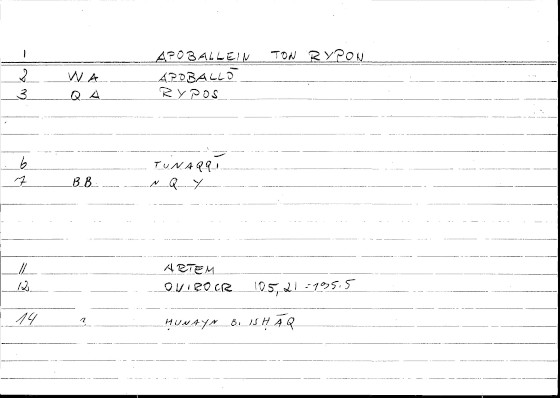 1 APOBALLEIN TON RYPON
2 WA APOBALLŌ
3 QA RYPOS
6 TUNAQQĪ
7 BB NQY
11 ARTEM
12 OVIROCR 105,21 = 195.5
14 ḤUNAYN B. ISḤĀQ